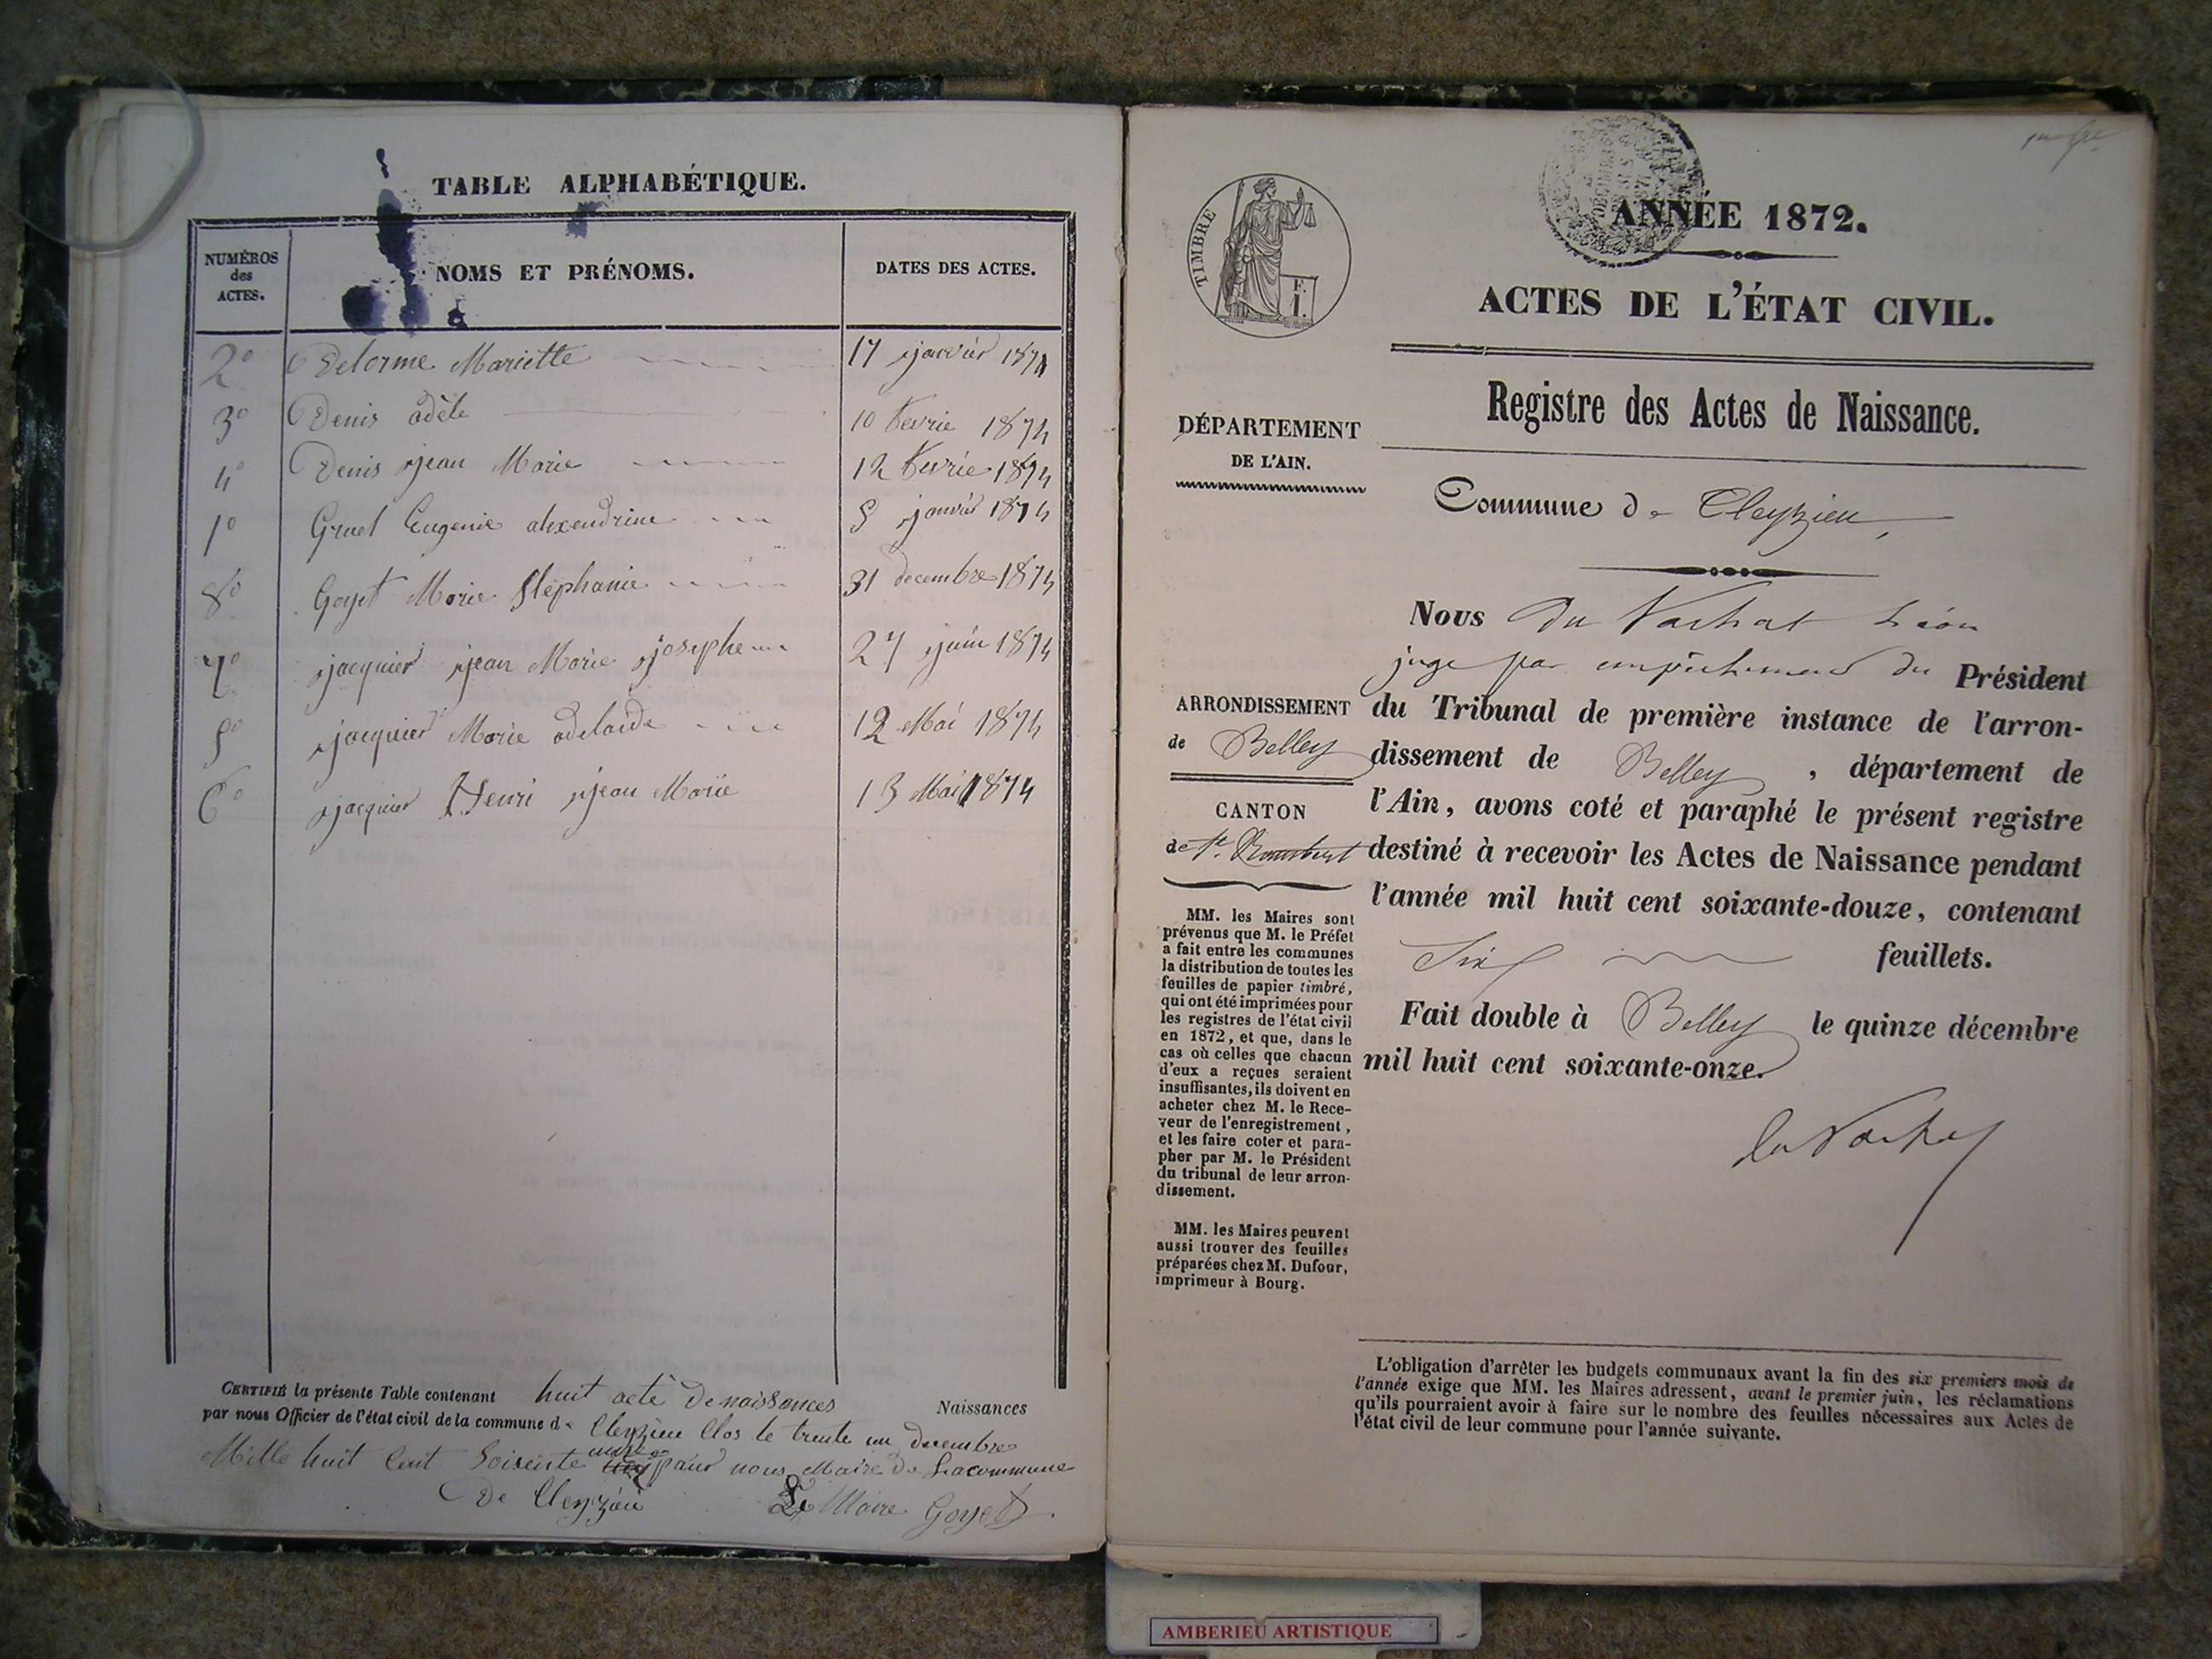 TABLE ALPHABÉTIQUE.
NUMÉROS
des
ACTES.
NOMS ET PRÉNOMS.
DATES DES ACTES.
2° Delorme Mariette 17 janvier 1871
3° Denis adèle 10 fevrie 1871
4° Denis jean Marie 12 fevrie 1871
1° Gruel Eugenie alexendrine 5 janvier 1871
8° Goyet Marie Stéphanie 31 decembre 1871
7° jacquier jean Marie josephe 27 juin 1871
5° jacquier Marie adelaide 12 Mai 1871
6° jacquier Henri jean Marie 13 Mai 1871
CERTIFIÉ la présente Table contenant huit acte de naissances Naissances
par nous Officier de l'état civil de la commune de Cleyzieu Clos le trente un decembre
Mille huit Cent Soisente onze par nous Maire de Lacommune
De Cleyzieu Le Maire Goyet
TIMBRE
F.
1.
ANNÉE 1872.
ACTES DE L'ÉTAT CIVIL.
Registre des Actes de Naissance.
DÉPARTEMENT
DE L'AIN.
Commune de Cleyzieu
ARRONDISSEMENT
de Belley
CANTON
de St. Rambert
MM. les Maires sont
prévenus que M. le Préfet
a fait entre les communes
la distribution de toutes les
feuilles de papier timbré,
qui ont été imprimées pour
les registres de l'état civil
en 1872, et que, dans le
cas où celles que chacun
d'eux a reçues seraient
insuffisantes, ils doivent en
acheter chez M. le Rece-
veur de l'enregistrement,
et les faire coter et para-
pher par M. le Président
du tribunal de leur arron-
dissement.
MM. les Maires peuvent
aussi trouver des feuilles
préparées chez M. Dufour,
imprimeur à Bourg.
Nous Du Vachat Léon
juge par empêchement du Président
du Tribunal de première instance de l'arron-
dissement de Belley, département de
l'Ain, avons coté et paraphé le présent registre
destiné à recevoir les Actes de Naissance pendant
l'année mil huit cent soixante-douze, contenant
Six feuillets.
Fait double à Belley le quinze décembre
mil huit cent soixante-onze.
du Vachat
L'obligation d'arrêter les budgets communaux avant la fin des six premiers mois de
l'année exige que MM. les Maires adressent, avant le premier juin, les réclamations
qu'ils pourraient avoir à faire sur le nombre des feuilles nécessaires aux Actes de
l'état civil de leur commune pour l'année suivante.
AMBERIEU ARTISTIQUE